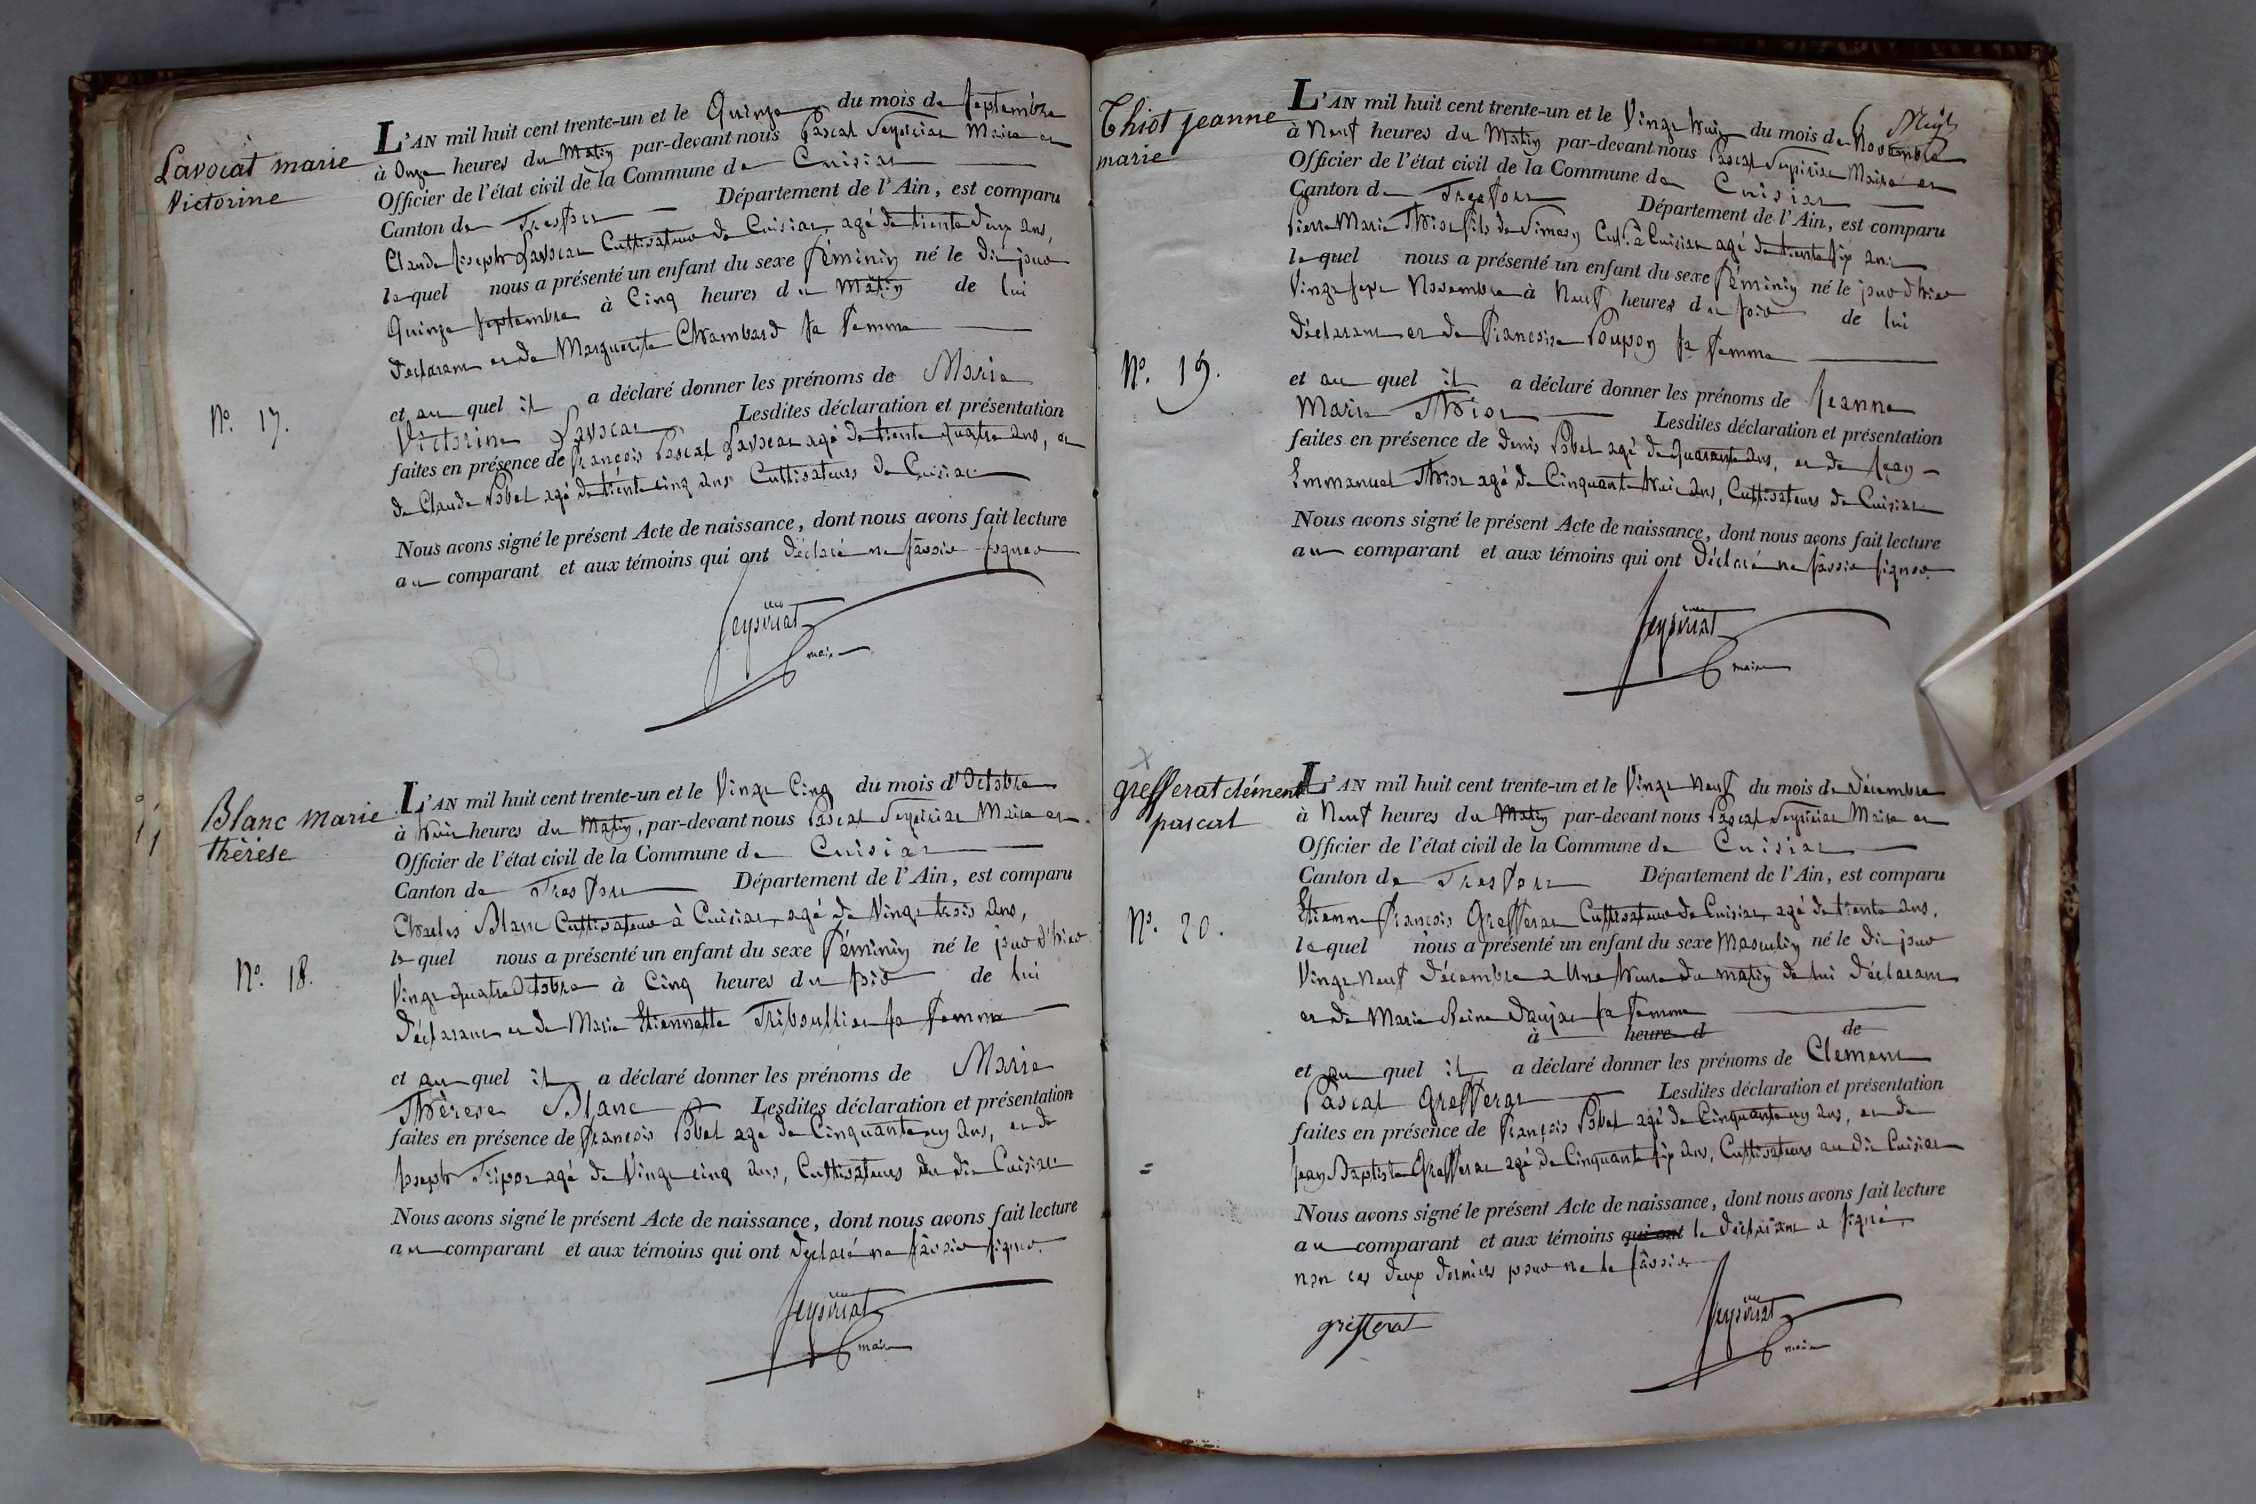 Lavocat marie
Victorine
N.º 17.
L'AN mil huit cent trente-un et le Quinze du mois de Septembre
à Onze heures du Matin par-devant nous Pascal Seyvriat Maire et
Officier de l'état civil de la Commune de Cuisiat
Canton de Treffort Département de l'Ain, est comparu
Claude Joseph Lavocat Cultivateur de Cuisiat, agé de trente deux ans,
lequel nous a présenté un enfant du sexe féminin né le dit jour
Quinze Septembre à Cinq heures du Matin de lui
déclarant et de Marguerite Chambard sa femme
et au quel il a déclaré donner les prénoms de Marie
Victorine Lavocat Lesdites déclaration et présentation
faites en présence de françois Pascal Lavocat agé de trente quatre ans, et
de Claude Pobel agé de trente cinq ans Cultivateurs de Cuisiat
Nous avons signé le présent Acte de naissance, dont nous avons fait lecture
au comparant et aux témoins qui ont déclaré ne savoir signer
Seyvriat
maire
Blanc marie
thérése
N.º 18.
L'AN mil huit cent trente-un et le Vingt Cinq du mois d'Octobre
à huit heures du Matin, par-devant nous Pascal Seyvriat Maire et
Officier de l'état civil de la Commune de Cuisiat
Canton de Treffort Département de l'Ain, est comparu
Charles Blanc Cultivateur à Cuisiat, agé de Vingt trois ans,
lequel nous a présenté un enfant du sexe féminin né le jour d'hier
Vingt quatre Octobre à Cinq heures du soir de lui
déclarant et de Marie Etiennette Triboullier sa femme
et au quel il a déclaré donner les prénoms de Marie
Thérese Blanc Lesdites déclaration et présentation
faites en présence de françois Pobel agé de Cinquante un ans, et de
Joseph Tripoz agé de Vingt cinq ans, Cultivateurs du dit Cuisiat
Nous avons signé le présent Acte de naissance, dont nous avons fait lecture
au comparant et aux témoins qui ont déclaré ne savoir signer.
Seyvriat
maire
Thiot jeanne
marie
N.º 19.
L'AN mil huit cent trente-un et le Vingt huit du mois de Novembre
à Neuf heures du Matin par-devant nous Pascal Seyvriat Maire et
Officier de l'état civil de la Commune de Cuisiat
Canton de Treffort Département de l'Ain, est comparu
Pierre Marie Thiot fils de Simeon Cult.r à Cuisiat agé de trente six ans
lequel nous a présenté un enfant du sexe féminin né le jour d'hier
Vingt sept Novembre à Neuf heures du soir de lui
déclarant et de Françoise Poupon sa femme
et au quel il a déclaré donner les prénoms de Jeanne
Marie Thiot Lesdites déclaration et présentation
faites en présence de denis Pobel agé de Quarante ans, et de Jean
Emmanuel Thiot agé de Cinquante huit ans, Cultivateurs de Cuisiat
Nous avons signé le présent Acte de naissance, dont nous avons fait lecture
au comparant et aux témoins qui ont déclaré ne savoir signer.
Seyvriat
maire
grefferat clément
pascal
N.º 20.
L'AN mil huit cent trente-un et le Vingt Neuf du mois de décembre
à Neuf heures du Matin par-devant nous Pascal Seyvriat Maire et
Officier de l'état civil de la Commune de Cuisiat
Canton de Treffort Département de l'Ain, est comparu
Etienne françois Grefferat Cultivateur de Cuisiat, agé de trente ans,
lequel nous a présenté un enfant du sexe Masculin né le dit jour
Vingt Neuf décembre a Une heure du matin de lui déclarant
et de Marie Reine Daujat sa femme
à heure d de
et au quel il a déclaré donner les prénoms de Clement
Pascal Grefferat Lesdites déclaration et présentation
faites en présence de françois Pobel agé de Cinquante un ans, et de
Jean Baptiste Grefferat agé de Cinquante six ans, Cultivateurs au dit Cuisiat
Nous avons signé le présent Acte de naissance, dont nous avons fait lecture
au comparant et aux témoins qui ont le déclarant a signé,
non ces deux derniers pour ne le savoir
grefferat
Seyvriat
maire